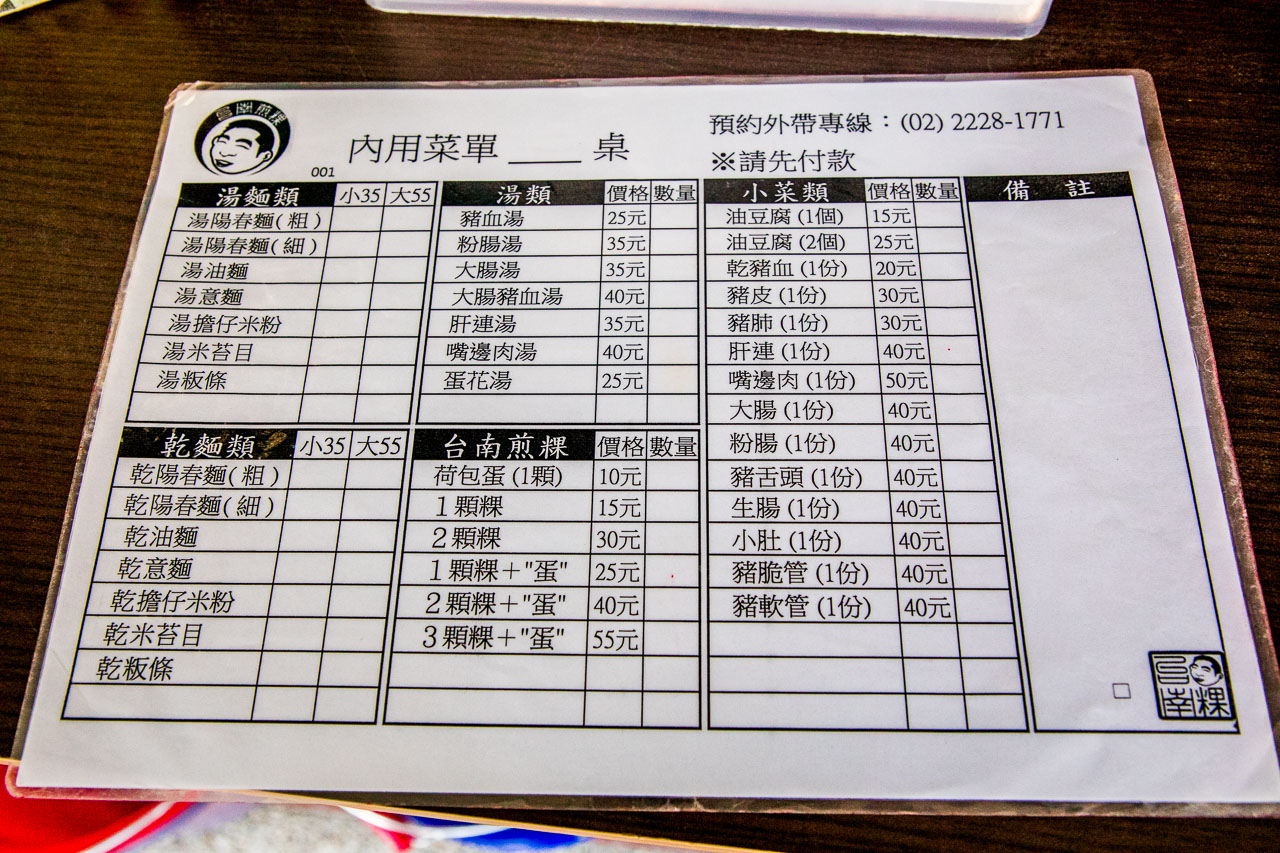 煎粿
001
內用菜單 ____ 桌
預約外帶專線：(02) 2228-1771
※請先付款
湯麵類 小35 大55
湯陽春麵(粗)
湯陽春麵(細)
湯油麵
湯意麵
湯擔仔米粉
湯米苔目
湯粄條
乾麵類 小35 大55
乾陽春麵(粗)
乾陽春麵(細)
乾油麵
乾意麵
乾擔仔米粉
乾米苔目
乾粄條
湯類 價格 數量
豬血湯 25元
粉腸湯 35元
大腸湯 35元
大腸豬血湯 40元
肝連湯 35元
嘴邊肉湯 40元
蛋花湯 25元
台南煎粿 價格 數量
荷包蛋 (1顆) 10元
1顆粿 15元
2顆粿 30元
1顆粿＋"蛋" 25元
2顆粿＋"蛋" 40元
3顆粿＋"蛋" 55元
小菜類 價格 數量
油豆腐 (1個) 15元
油豆腐 (2個) 25元
乾豬血 (1份) 20元
豬皮 (1份) 30元
豬肺 (1份) 30元
肝連 (1份) 40元
嘴邊肉 (1份) 50元
大腸 (1份) 40元
粉腸 (1份) 40元
豬舌頭 (1份) 40元
生腸 (1份) 40元
小肚 (1份) 40元
豬脆管 (1份) 40元
豬軟管 (1份) 40元
備註
南粿